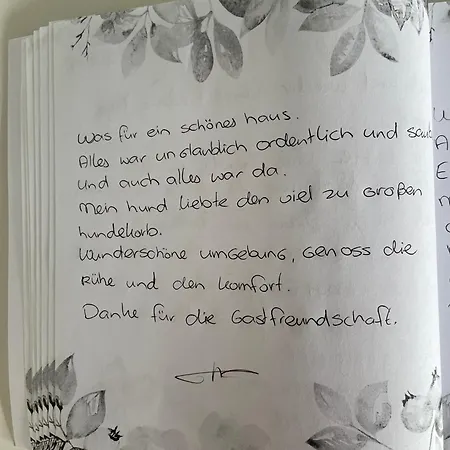 Was für ein schönes haus.
Alles war unglaublich ordentlich und
Und auch alles war da.
Mein hund liebte den viel zu großen
hundekorb.
Wunderschöne umgebung, genoss die
Rühe und den komfort.
Danke für die Gastfreundschaft.